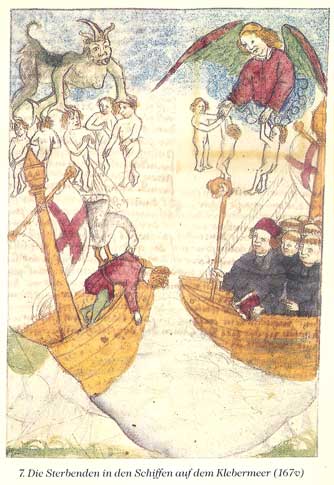 7. Die Sterbenden in den Schiffen auf dem Klebermeer (167v)